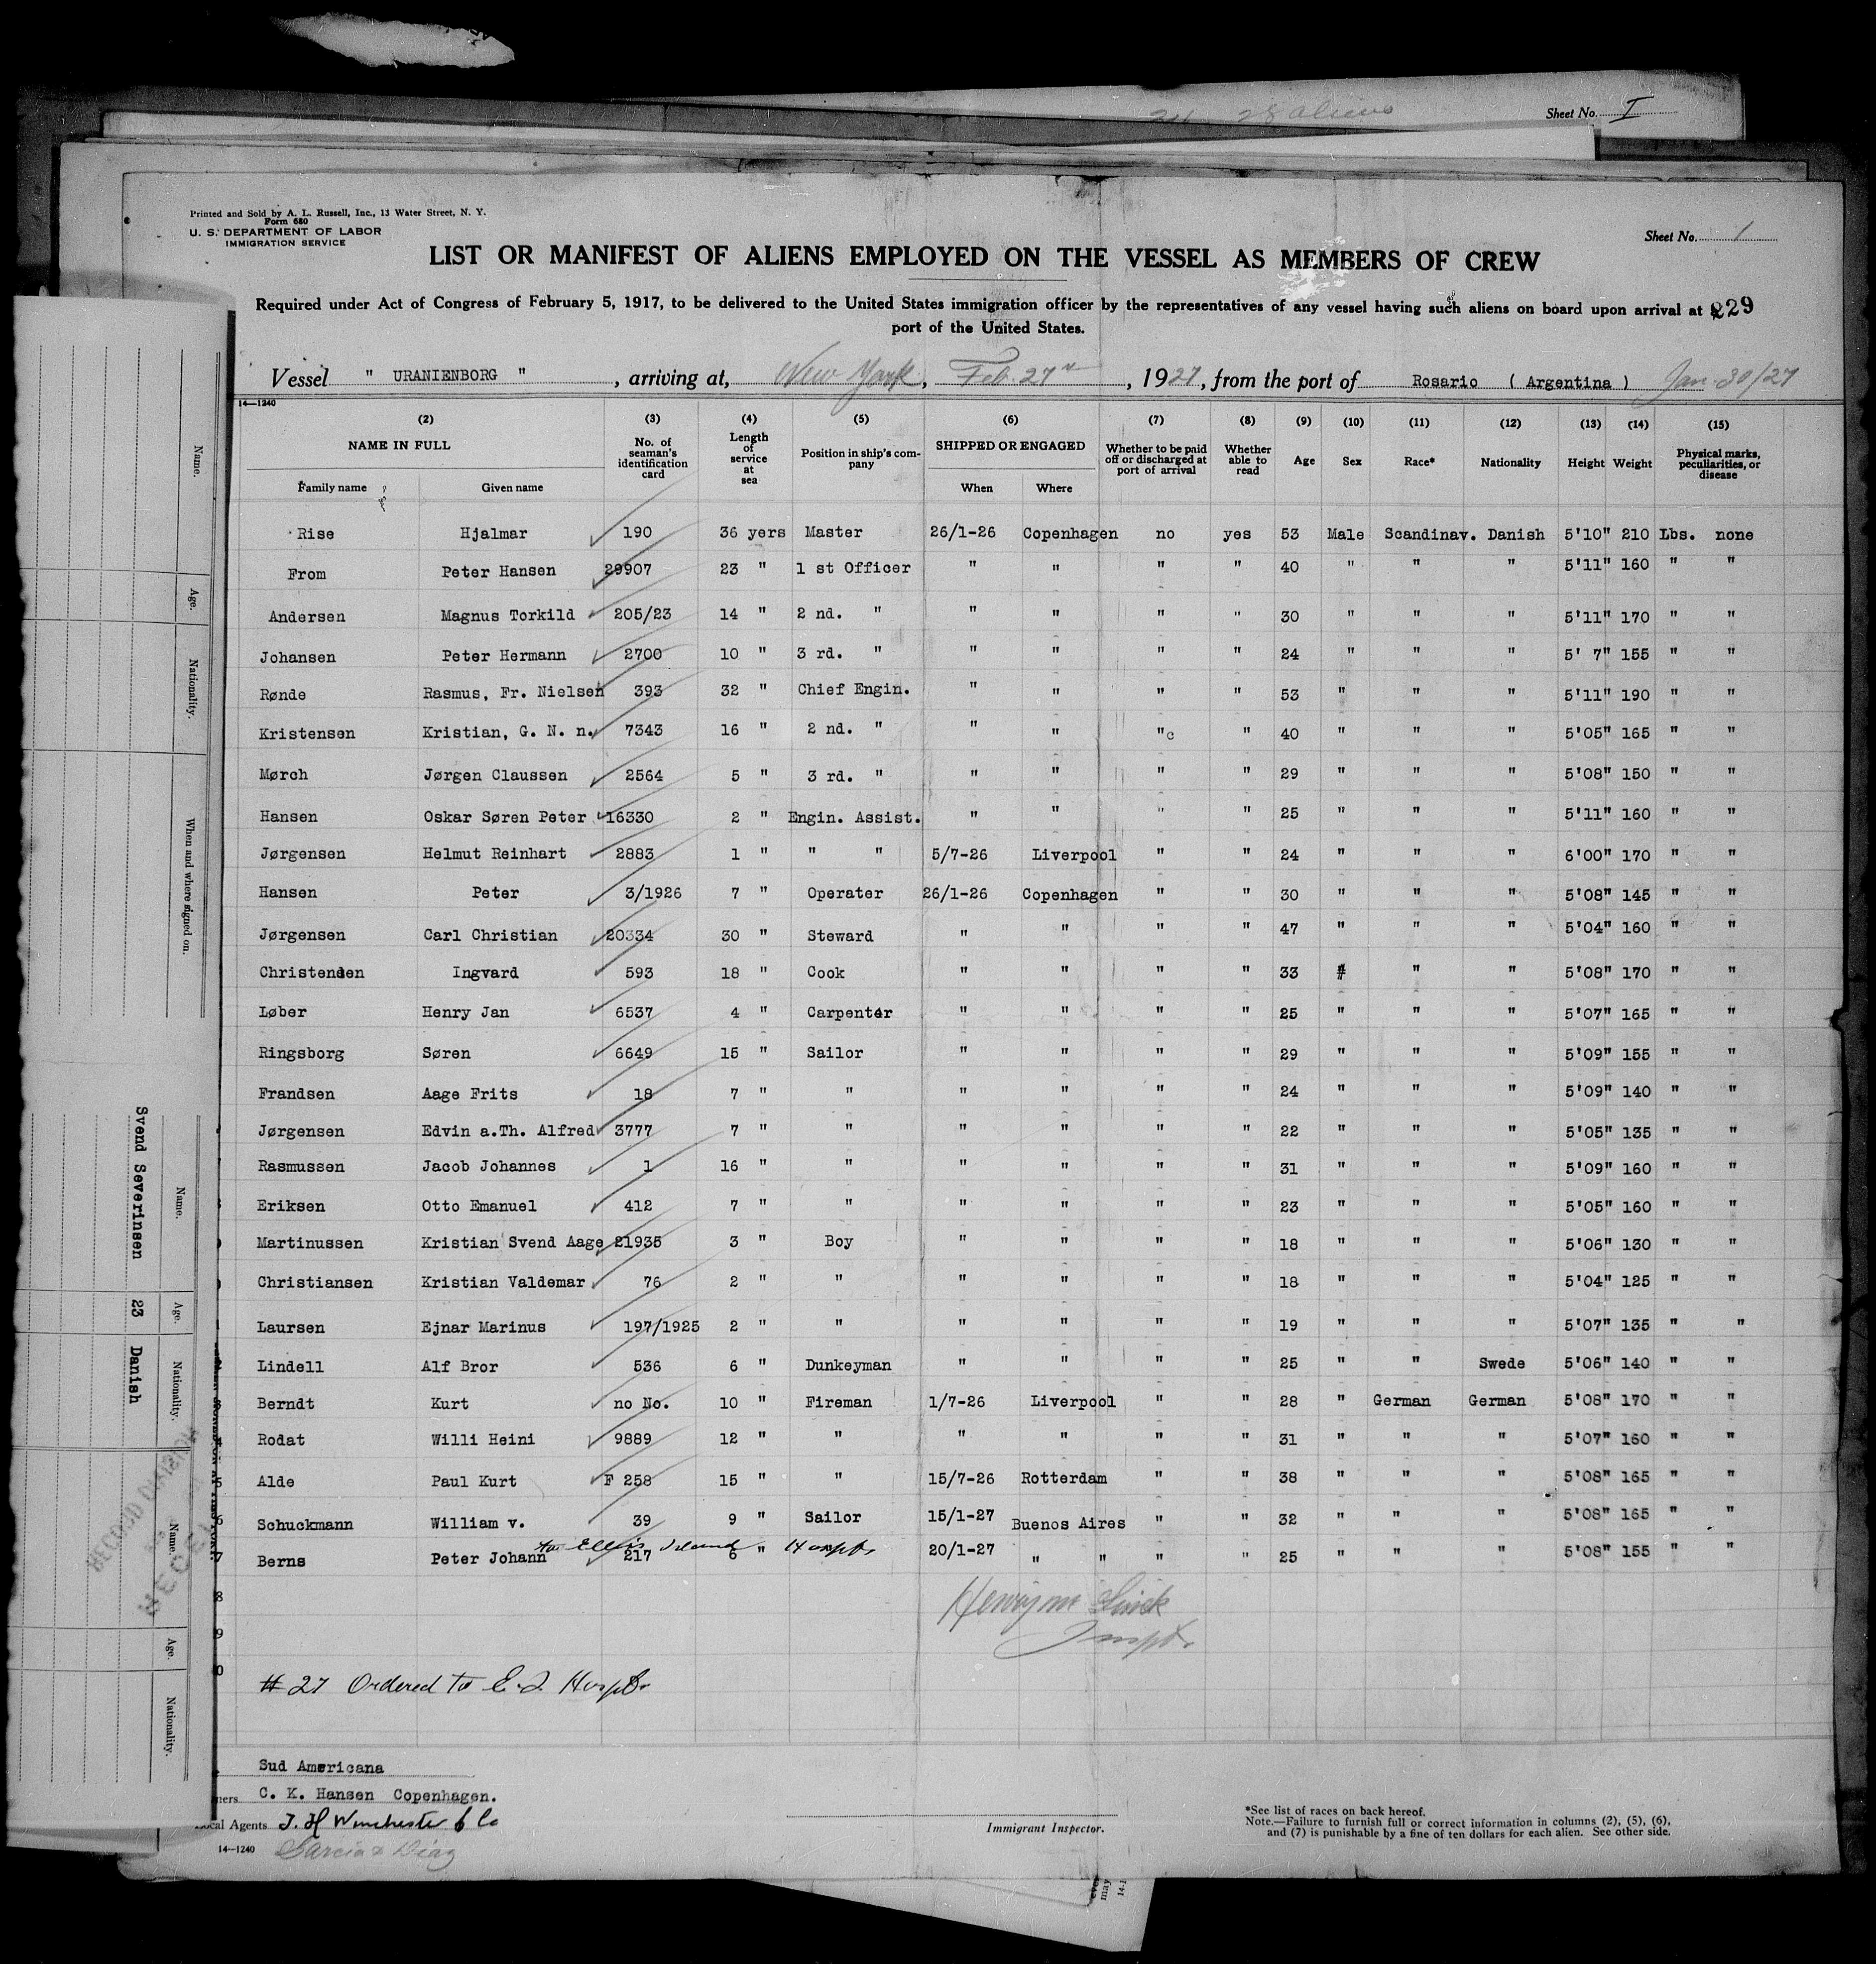 Sheet No. I
Printed and Sold by A. L. Russell, Inc., 13 Water Street, N. Y.
Form 680
U. S. DEPARTMENT OF LABOR
IMMIGRATION SERVICE
Sheet No. 1
LIST OR MANIFEST OF ALIENS EMPLOYED ON THE VESSEL AS MEMBERS OF CREW
Required under Act of Congress of February 5, 1917, to be delivered to the United States immigration officer by the representatives of any vessel having such aliens on board upon arrival at a
229
port of the United States.
Vessel " URANIENBORG ", arriving at, New York, Feb. 27th, 1927, from the port of Rosario ( Argentina ) Jan-30/27
14—1240
(2) (3) (4) (5) (6) (7) (8) (9) (10) (11) (12) (13) (14) (15)
NAME IN FULL No. of seaman's identification card Length of service at sea Position in ship's company SHIPPED OR ENGAGED Whether to be paid off or discharged at port of arrival Whether able to read Age Sex Race* Nationality Height Weight Physical marks, peculiarities, or disease
Family name Given name When Where
Rise Hjalmar 190 36 yers Master 26/1-26 Copenhagen no yes 53 Male Scandinav. Danish 5'10" 210 Lbs. none
From Peter Hansen 29907 23 " 1 st Officer " " " " 40 " " " 5'11" 160 " "
Andersen Magnus Torkild 205/23 14 " 2 nd. " " " " " 30 " " " 5'11" 170 " "
Johansen Peter Hermann 2700 10 " 3 rd. " " " " " 24 " " " 5' 7" 155 " "
Rønde Rasmus, Fr. Nielsen 393 32 " Chief Engin. " " " " 53 " " " 5'11" 190 " "
Kristensen Kristian, G. N. n. 7343 16 " 2 nd. " " " "c " 40 " " " 5'05" 165 " "
Mørch Jørgen Claussen 2564 5 " 3 rd. " " " " " 29 " " " 5'08" 150 " "
Hansen Oskar Søren Peter 16330 2 " Engin. Assist. " " " " 25 " " " 5'11" 160 " "
Jørgensen Helmut Reinhart 2883 1 " " " 5/7-26 Liverpool " " 24 " " " 6'00" 170 " "
Hansen Peter 3/1926 7 " Operater 26/1-26 Copenhagen " " 30 " " " 5'08" 145 " "
Jørgensen Carl Christian 20334 30 " Steward " " " " 47 " " " 5'04" 160 " "
Christensen Ingvard 593 18 " Cook " " " " 33 # " " 5'08" 170 " "
Løber Henry Jan 6537 4 " Carpenter " " " " 25 " " " 5'07" 165 " "
Ringsborg Søren 6649 15 " Sailor " " " " 29 " " " 5'09" 155 " "
Frandsen Aage Frits 18 7 " " " " " " 24 " " " 5'09" 140 " "
Jørgensen Edvin a.Th. Alfred 3777 7 " " " " " " 22 " " " 5'05" 135 " "
Rasmussen Jacob Johannes 1 16 " " " " " " 31 " " " 5'09" 160 " "
Eriksen Otto Emanuel 412 7 " " " " " " 23 " " " 5'05" 160 " "
Martinussen Kristian Svend Aage 21935 3 " Boy " " " " 18 " " " 5'06" 130 " "
Christiansen Kristian Valdemar 76 2 " " " " " " 18 " " " 5'04" 125 " "
Laursen Ejnar Marinus 197/1925 2 " " " " " " 19 " " " 5'07" 135 " "
Lindell Alf Bror 536 6 " Dunkeyman " " " " 25 " " Swede 5'06" 140 " "
Berndt Kurt no No. 10 " Fireman 1/7-26 Liverpool " " 28 " German German 5'08" 170 " "
Rodat Willi Heini 9889 12 " " " " " " 31 " " " 5'07" 160 " "
Alde Paul Kurt F 258 15 " " 15/7-26 Rotterdam " " 38 " " " 5'08" 165 " "
Schuckmann William v. 39 9 " Sailor 15/1-27 Buenos Aires " " 32 " " " 5'08" 165 " "
to Ellis Island Hospt.
Berns Peter Johann 217 6 " 20/1-27 " " " " 25 " " " 5'08" 155 " "
Inspt.
# 27 Ordered to E. I. Hospt.
Sud Americana
C. K. Hansen Copenhagen.
Local Agents T. H Winchester & Co
14—1240 Garcia & Diaz
Immigrant Inspector.
*See list of races on back hereof.
Note.—Failure to furnish full or correct information in columns (2), (5), (6),
and (7) is punishable by a fine of ten dollars for each alien. See other side.
Name. Age. Nationality. When and where signed on.
Name. Age. Nationality.
Svend Severinsen 23 Danish
Name. Age. Nationality.